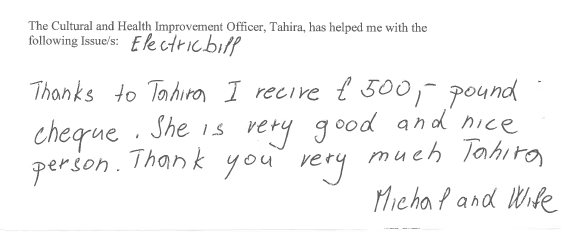 The Cultural and Health Improvement Officer, Tahira, has helped me with the
following Issue/s: Electricbill
Thanks to Tahira I recive £ 500,- pound
cheque. She is very good and nice
person. Thank you very much Tahira
Michal and Wife